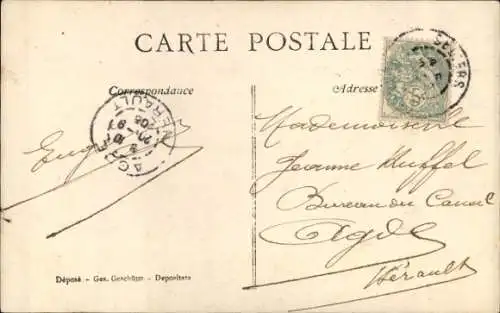 CARTE POSTALE
Correspondance
Adresse
Eug
AGDE HERAULT
BEZIERS
Mademoiselle
Jeanne Kuffel
Bureau du Canal
Agde
Hérault
Déposé - Ges. Geschützt - Depositata